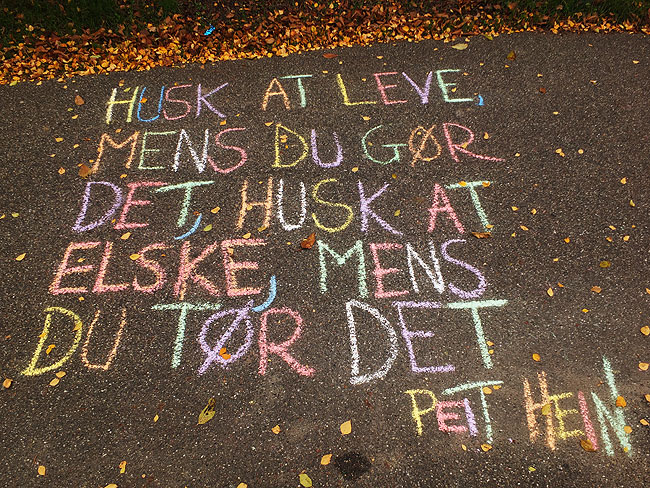 HUSK AT LEVE,
MENS DU GØR
DET, HUSK AT
ELSKE, MENS
DU TØR DET
PEIT HEIN!